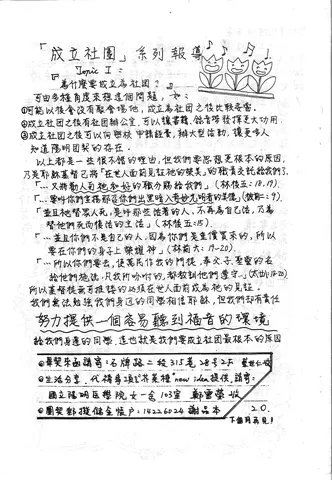 「成立社團」系列報導
Topic I：
『為什麼要成立為社團？』
可由多種角度來想這個問題，如：
①可能以後會沒有聚會場地，成立為社團之後比較妥當。
②成立社團之後有社團辦公室，可以讓書籍、錄音帶發揮更大功用。
③成立社團之後可以向學校申請經費，辦大型活動，讓更多人
知道陽明團契的存在。
以上都是一些很不錯的理由，但我們要思想更根本的原因，
乃是耶穌基督已將「在世人面前見証祂的榮美」的職責交託給我們了，
「…又將勸人與祂和好的職分賜給我們」（林後五：18.19）。
「…要叫你們宣揚那召你們出黑暗入奇妙光明者的美德」（彼前二：9）。
「並且祂替眾人死，是叫那些活著的人，不再為自己活，乃為
替他們死而復活的主活」（林後五：15）.
「…並且你們不是自己的人，因為你們是重價買來的，所以
要在你們的身子上榮耀神」（林前六：19-20）.
「…所以你們要去，使萬民作我的門徒，奉父、子、聖靈的名
給他們施洗，凡我所吩咐的，都教訓他們遵守…」（太廿八：18-20）
所以基督徒無可推諉的必須在世人面前成為祂的見証。
我們無法勉強我們身邊的同學相信耶穌，但我們卻有責任
努力提供一個容易聽到福音的環境
給我們身邊的同學，這也就是我們要成立社團最根本的原因
◎畢契來函請寄：石牌路二段315巷28号2F
◎生活分享，代禱事項，"不英種"new idea提供，請寄：
國立陽明醫學院女一舍103室 鄭雪榮 收
◎團契郵撥儲金帳户：14226024 謝品本
20.
下個月再見！